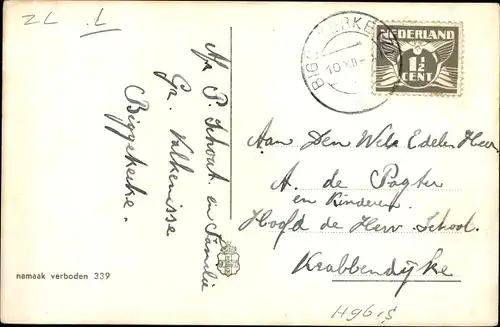 ZZ
1.
Afz. P. Schout en Familie
Gr. Valkenisse
Biggekerke.
BIGGEKERKE
10 XII
NEDERLAND
1½
CENT
Aan Den Wels Edelen Heer
A. de Pagter
en Kinderen.
Hoofd de Herv School.
Krabbendijke
namaak verboden 339